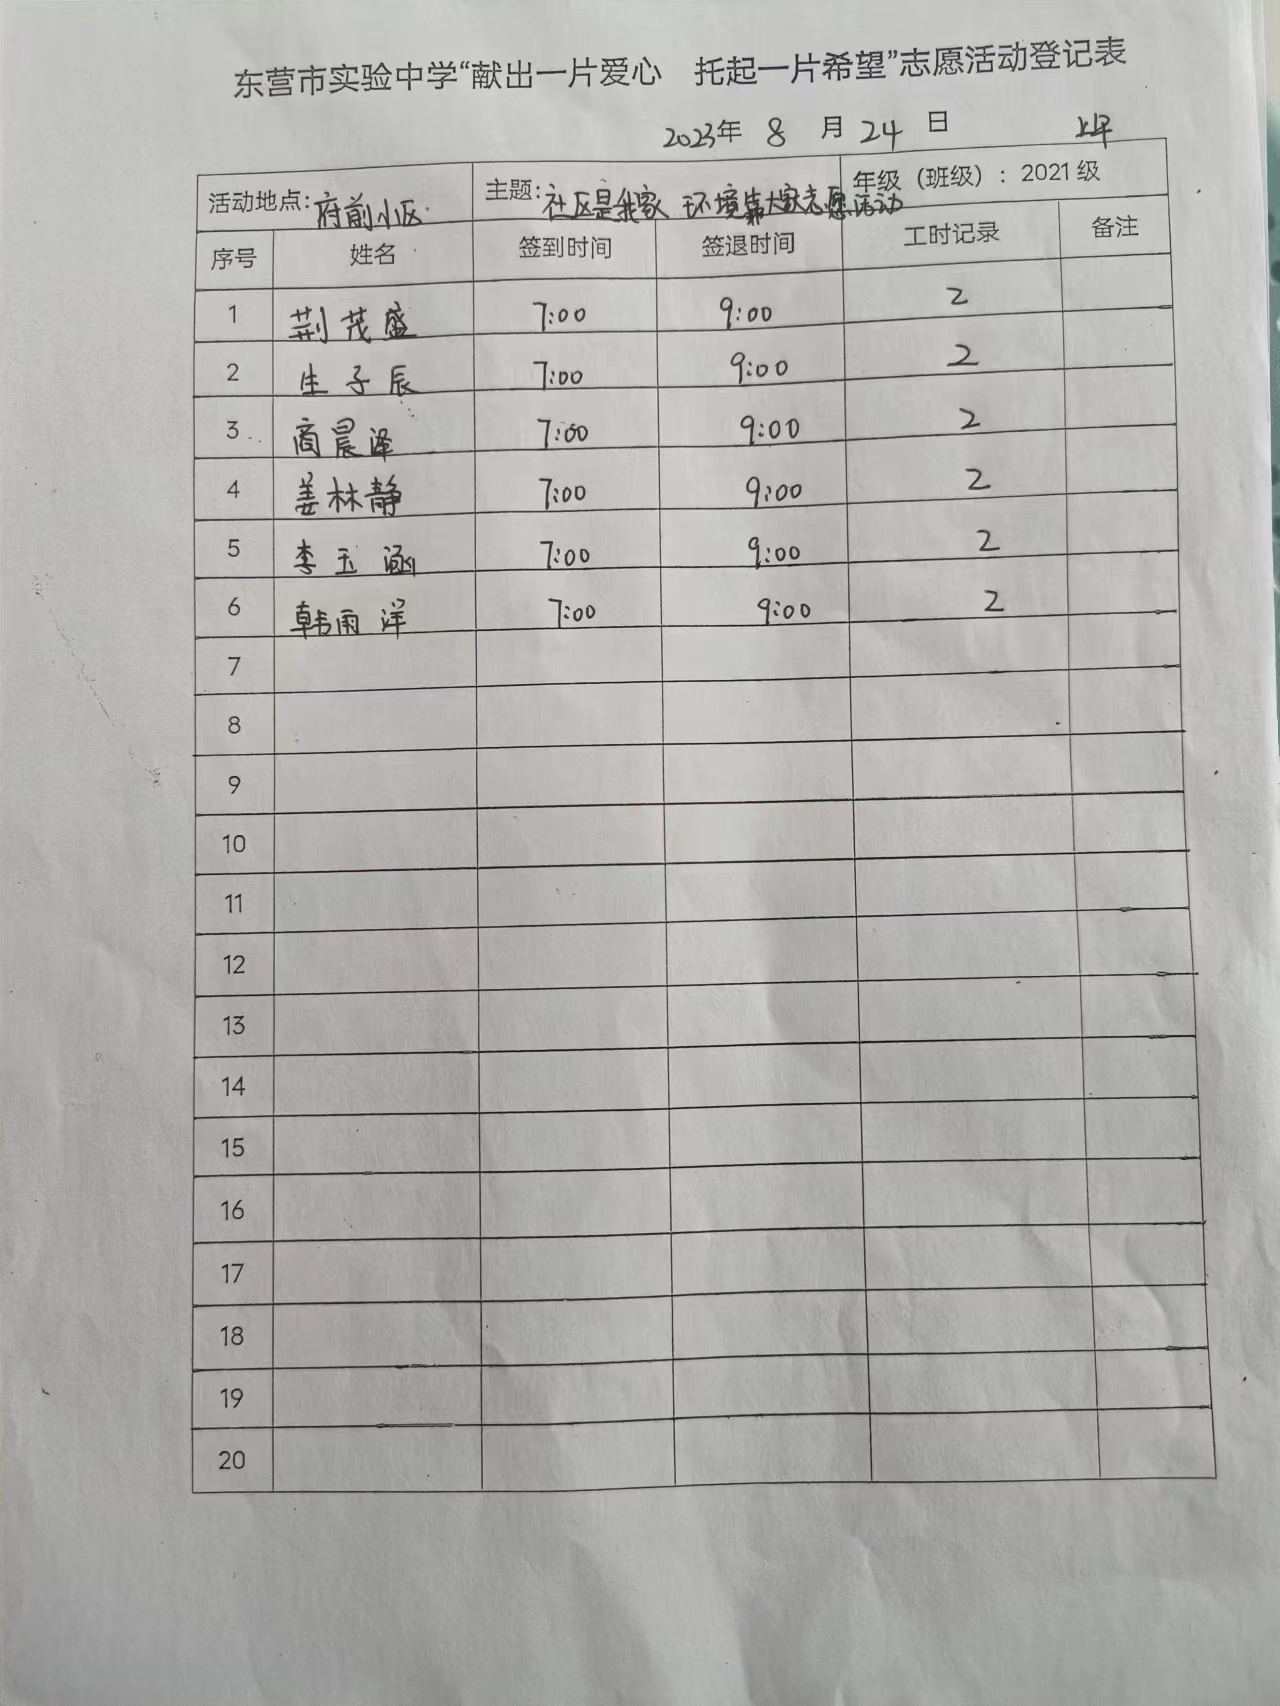 东营市实验中学“献出一片爱心 托起一片希望”志愿活动登记表
2023年 8 月 24 日 上午
活动地点:府前小区 主题:社区是我家 环境靠大家志愿活动 年级（班级）：2021级
序号 姓名 签到时间 签退时间 工时记录 备注
1 荆茂盛 7:00 9:00 2
2 生子辰 7:00 9:00 2
3 商晨泽 7:00 9:00 2
4 姜林静 7:00 9:00 2
5 李玉涵 7:00 9:00 2
6 韩雨洋 7:00 9:00 2
7
8
9
10
11
12
13
14
15
16
17
18
19
20